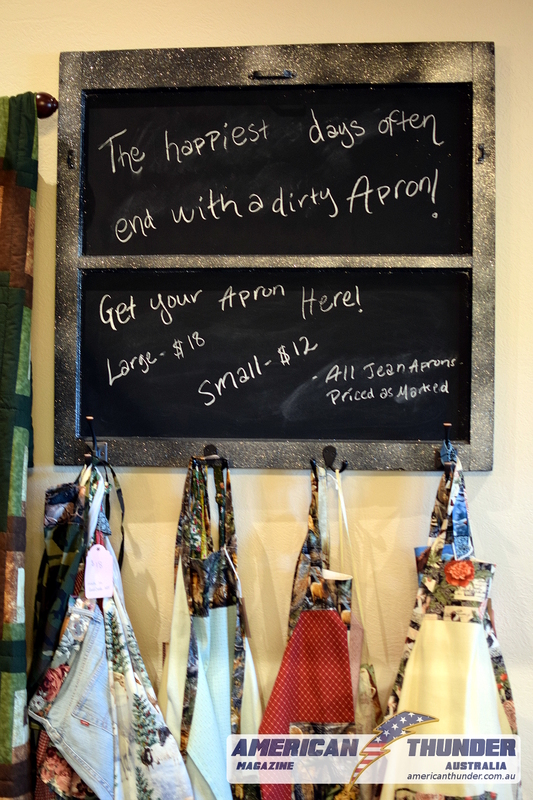 The happiest days often
end with a dirty Apron!
Get your Apron Here!
Large - $18
Small - $12
- All Jean Aprons -
Priced as Marked
AMERICAN THUNDER
MAGAZINE AUSTRALIA
americanthunder.com.au